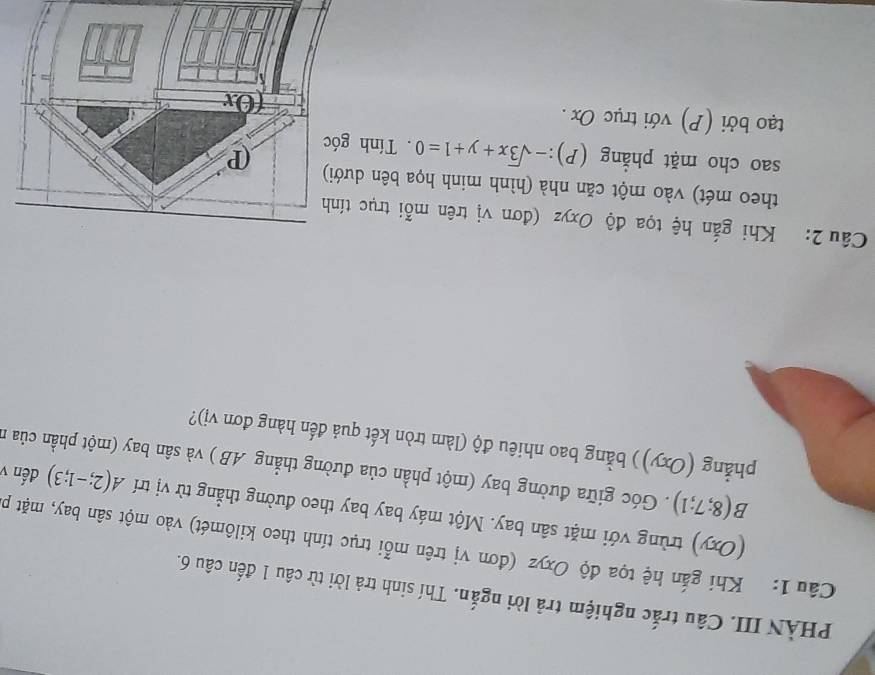 PHẦN III. Câu trắc nghiệm trả lời ngắn. Thí sinh trả lời từ câu 1 đến câu 6.
Câu 1: Khi gắn hệ tọa độ Oxyz (đơn vị trên mỗi trục tính theo kilômét) vào một sân bay, mặt
(Oxy) trùng với mặt sân bay. Một máy bay bay theo đường thẳng từ vị trí A(2;-1;3) đến
B(8;7;1). Góc giữa đường bay (một phần của đường thẳng AB) và sân bay (một phần của
phẳng (Oxy)) bằng bao nhiêu độ (làm tròn kết quả đến hàng đơn vị)?
Câu 2: Khi gắn hệ tọa độ Oxyz (đơn vị trên mỗi trục tính
theo mét) vào một căn nhà (hình minh họa bên dưới)
sao cho mặt phẳng (P): -√3x + y + 1 = 0. Tính góc
tạo bởi (P) với trục Ox.
(P
(Ox